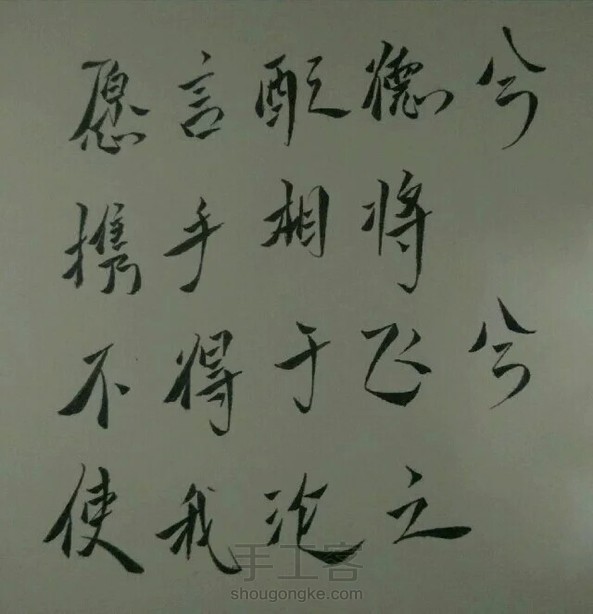 愿言配德兮
携手相将
不得于飞兮
使我沦亡
手工客
shougongke.com